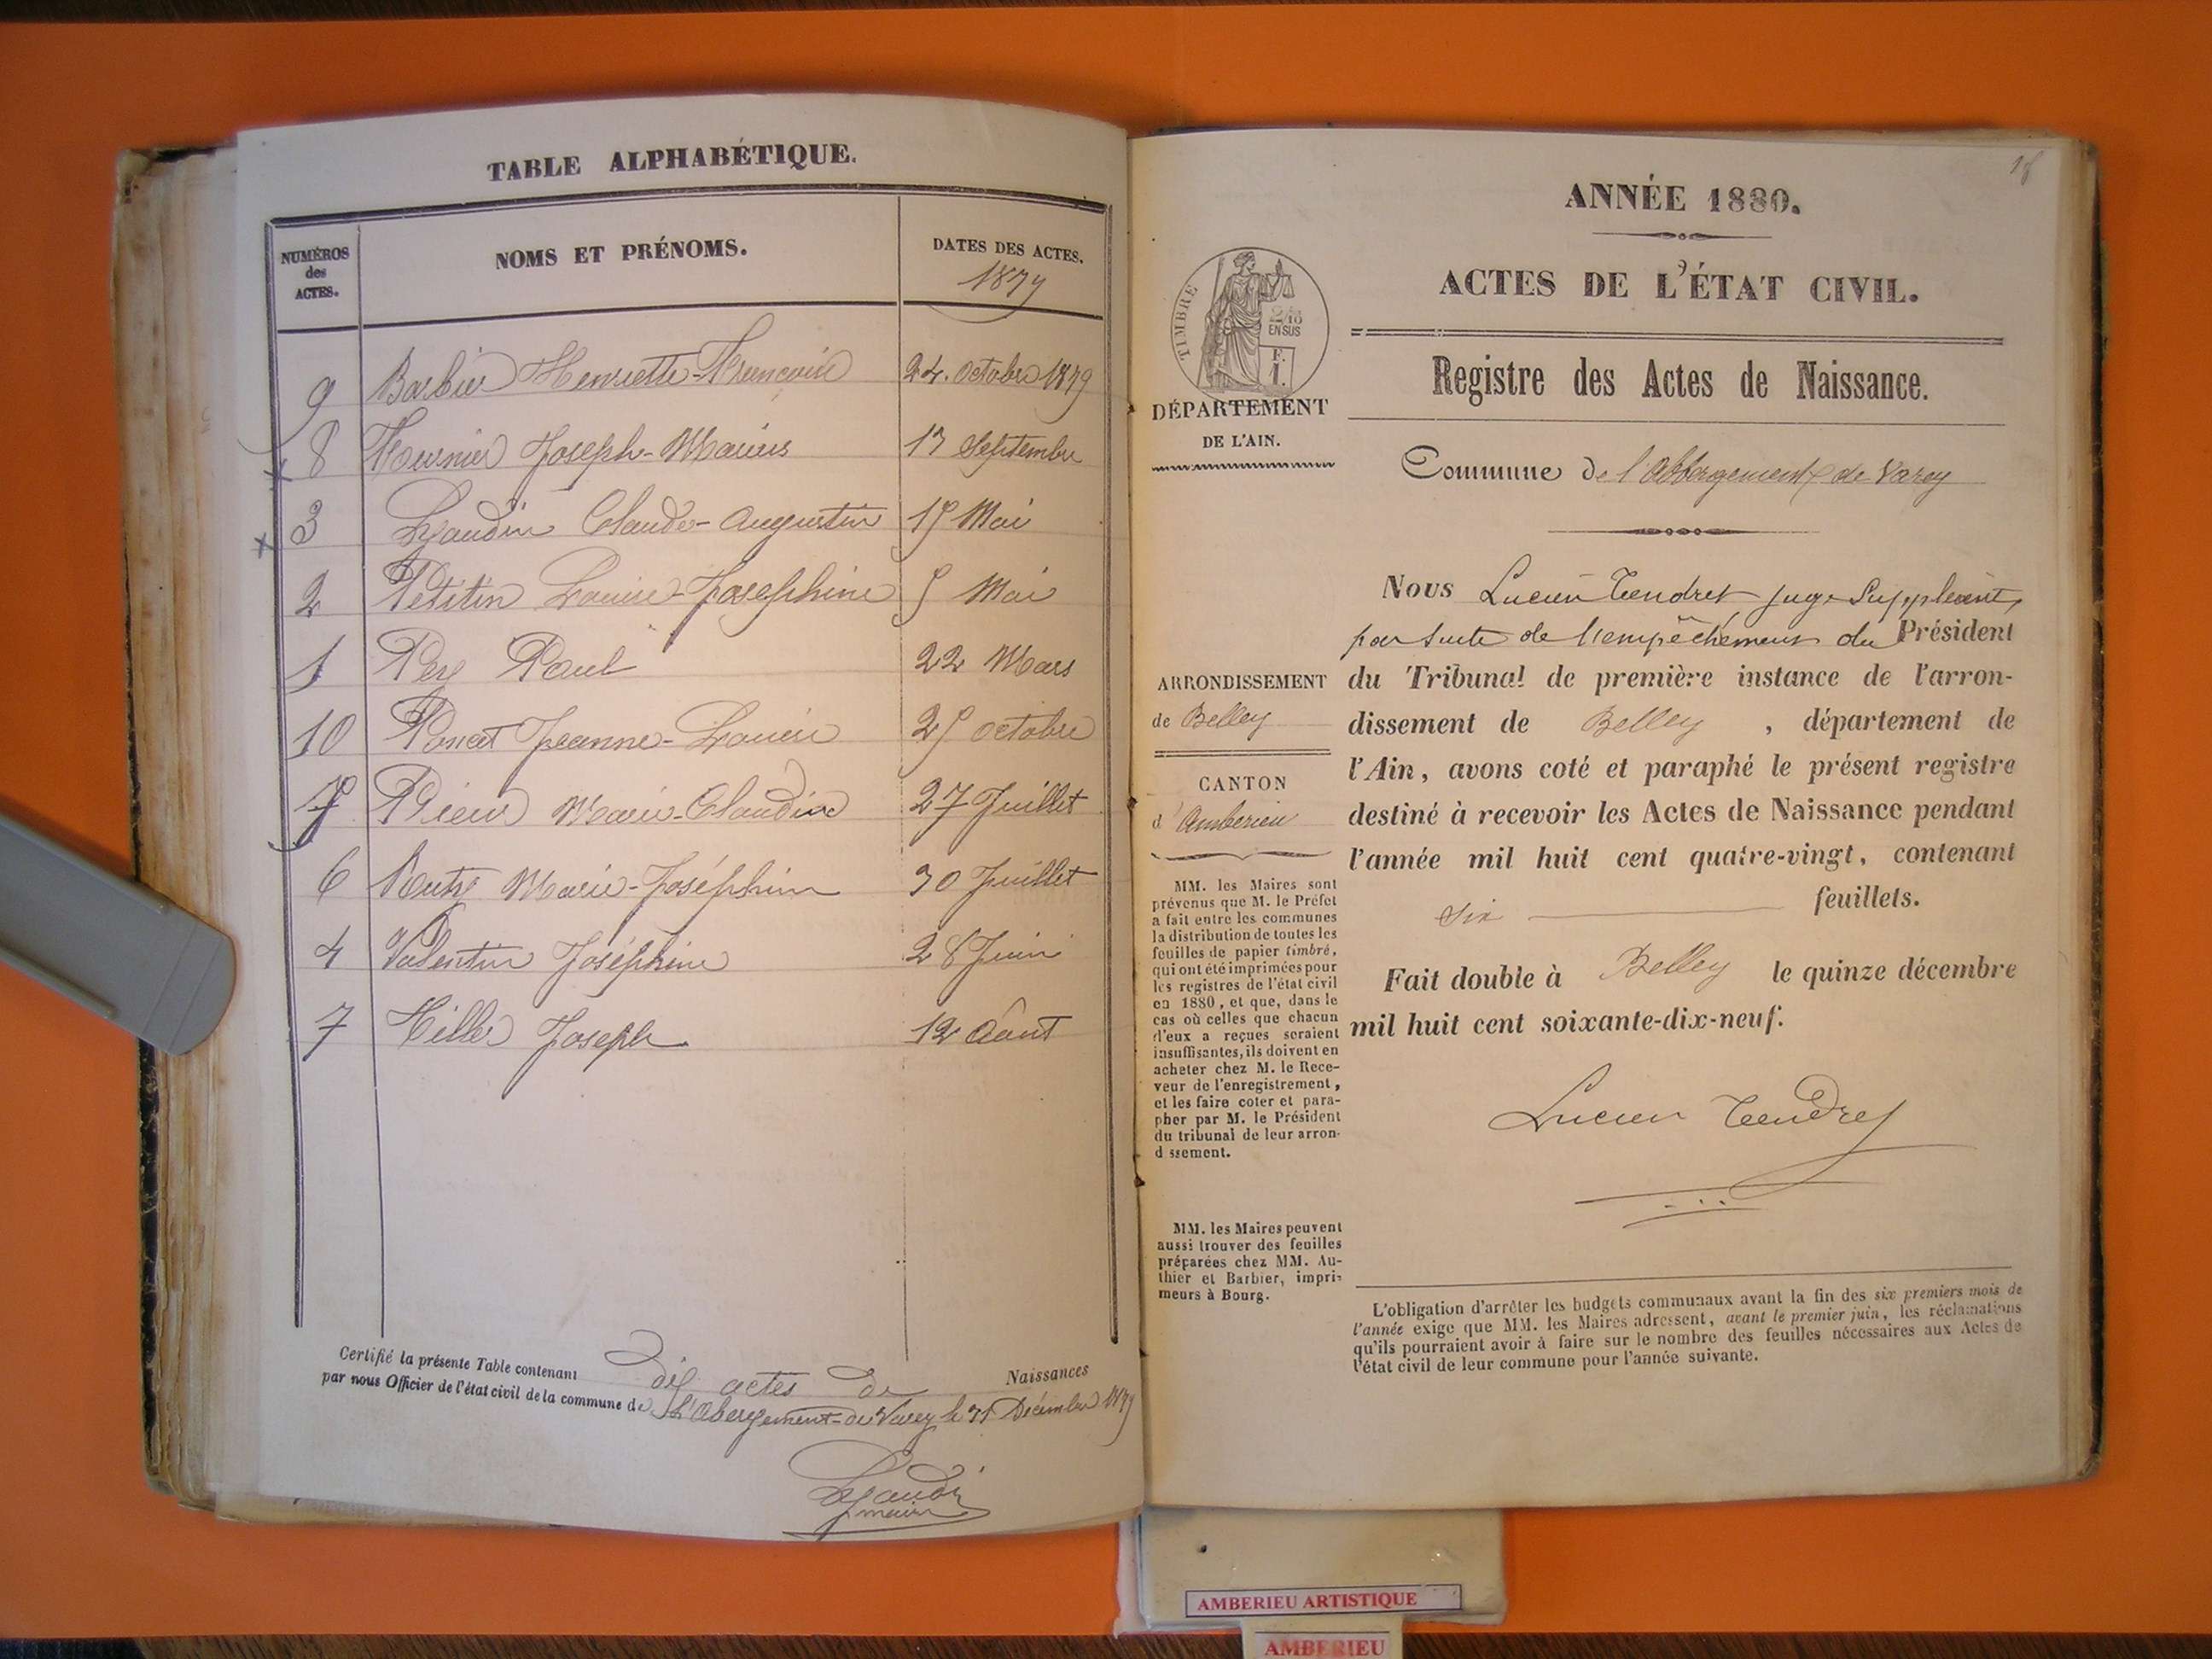 TABLE ALPHABÉTIQUE.
NUMÉROS
des
ACTES.
NOMS ET PRÉNOMS.
DATES DES ACTES.
1879
9 Barbier Henriette-Francoise 24. Octobre 1879
8 Joseph-Marius 13 Septembre
3 Claude-Augustin 15 Mai
2 Petitin Louise-Josephine 5 Mai
1 Rey Paul 22 Mars
10 Poncet Jeanne-Louise 25 Octobre
5 Marie-Claudine 27 Juillet
6 Marie-Joséphine 30 Juillet
4 Valentin Joséphine 28 Juin
7 Joseph 12 Août
Certifié la présente Table contenant dix actes de Naissances
par nous Officier de l'état civil de la commune de L'Abergement-de-Varey le 31 Décembre 1879
maire
18
ANNÉE 1880.
ACTES DE L'ÉTAT CIVIL.
TIMBRE
2/10
EN SUS
F.
1.
Registre des Actes de Naissance.
DÉPARTEMENT
DE L'AIN.
Commune de l'Abbergement de Varey
Nous Lucien Tendret juge Suppléant,
par suite de l'empêchement du Président
du Tribunal de première instance de l'arron-
dissement de Belley, département de
l'Ain, avons coté et paraphé le présent registre
destiné à recevoir les Actes de Naissance pendant
l'année mil huit cent quatre-vingt, contenant
six feuillets.
Fait double à Belley le quinze décembre
mil huit cent soixante-dix-neuf.
Lucien Tendret
ARRONDISSEMENT
de Belley
CANTON
d'Amberieu
MM. les Maires sont
prévenus que M. le Préfet
a fait entre les communes
la distribution de toutes les
feuilles de papier timbré,
qui ont été imprimées pour
les registres de l'état civil
en 1880, et que, dans le
cas où celles que chacun
d'eux a reçues seraient
insuffisantes, ils doivent en
acheter chez M. le Rece-
veur de l'enregistrement,
et les faire coter et para-
pher par M. le Président
du tribunal de leur arron-
d ssement.
MM. les Maires peuvent
aussi trouver des feuilles
préparées chez MM. Au-
thier et Barbier, impri-
meurs à Bourg.
L'obligation d'arrêter les budgets communaux avant la fin des six premiers mois de
l'année exige que MM. les Maires adressent, avant le premier juin, les réclamations
qu'ils pourraient avoir à faire sur le nombre des feuilles nécessaires aux Actes de
l'état civil de leur commune pour l'année suivante.
AMBERIEU ARTISTIQUE
AMBERIEU